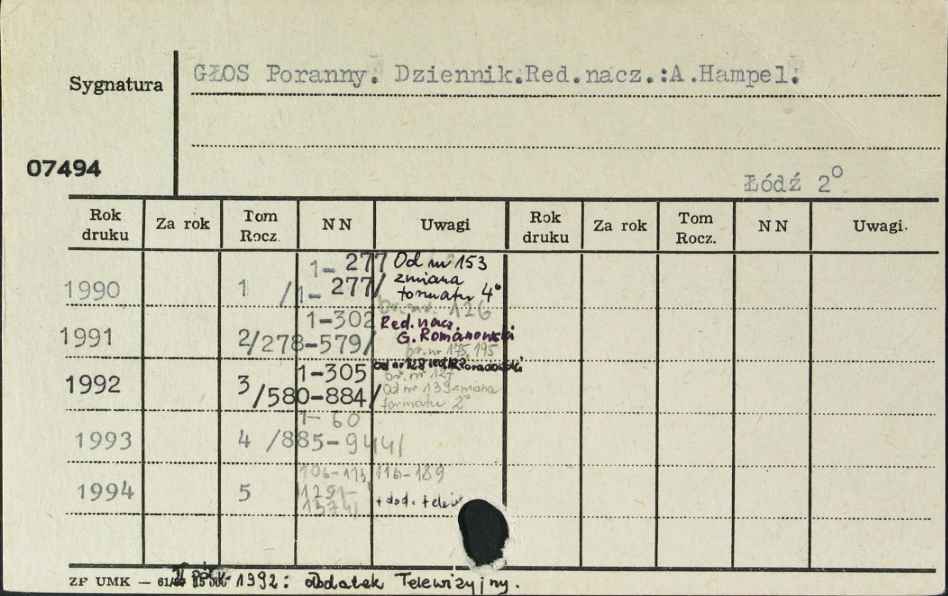 Sygnatura
GŁOS Poranny. Dziennik.Red.nacz.:A.Hampel.
07494
Łódź 2°
Rok druku Za rok Tom Rocz. NN Uwagi Rok druku Za rok Tom Rocz. NN Uwagi.
1990 1 1-277 /1-277/ Od nr 153 zmiana formatu 4°
126
1991 2 1-302 /278-579/ Red. nacz. G. Romanowski
br. nr 175, 195
1992 3 1-305 /580-884/
br. nr 127
Od nr 139 zmiana formatu 2°
1993 4 1-60 /885-944/
1994 5 116-189
+ dod. telew
ZP UMK — 1992: dodatek Telewizyjny.